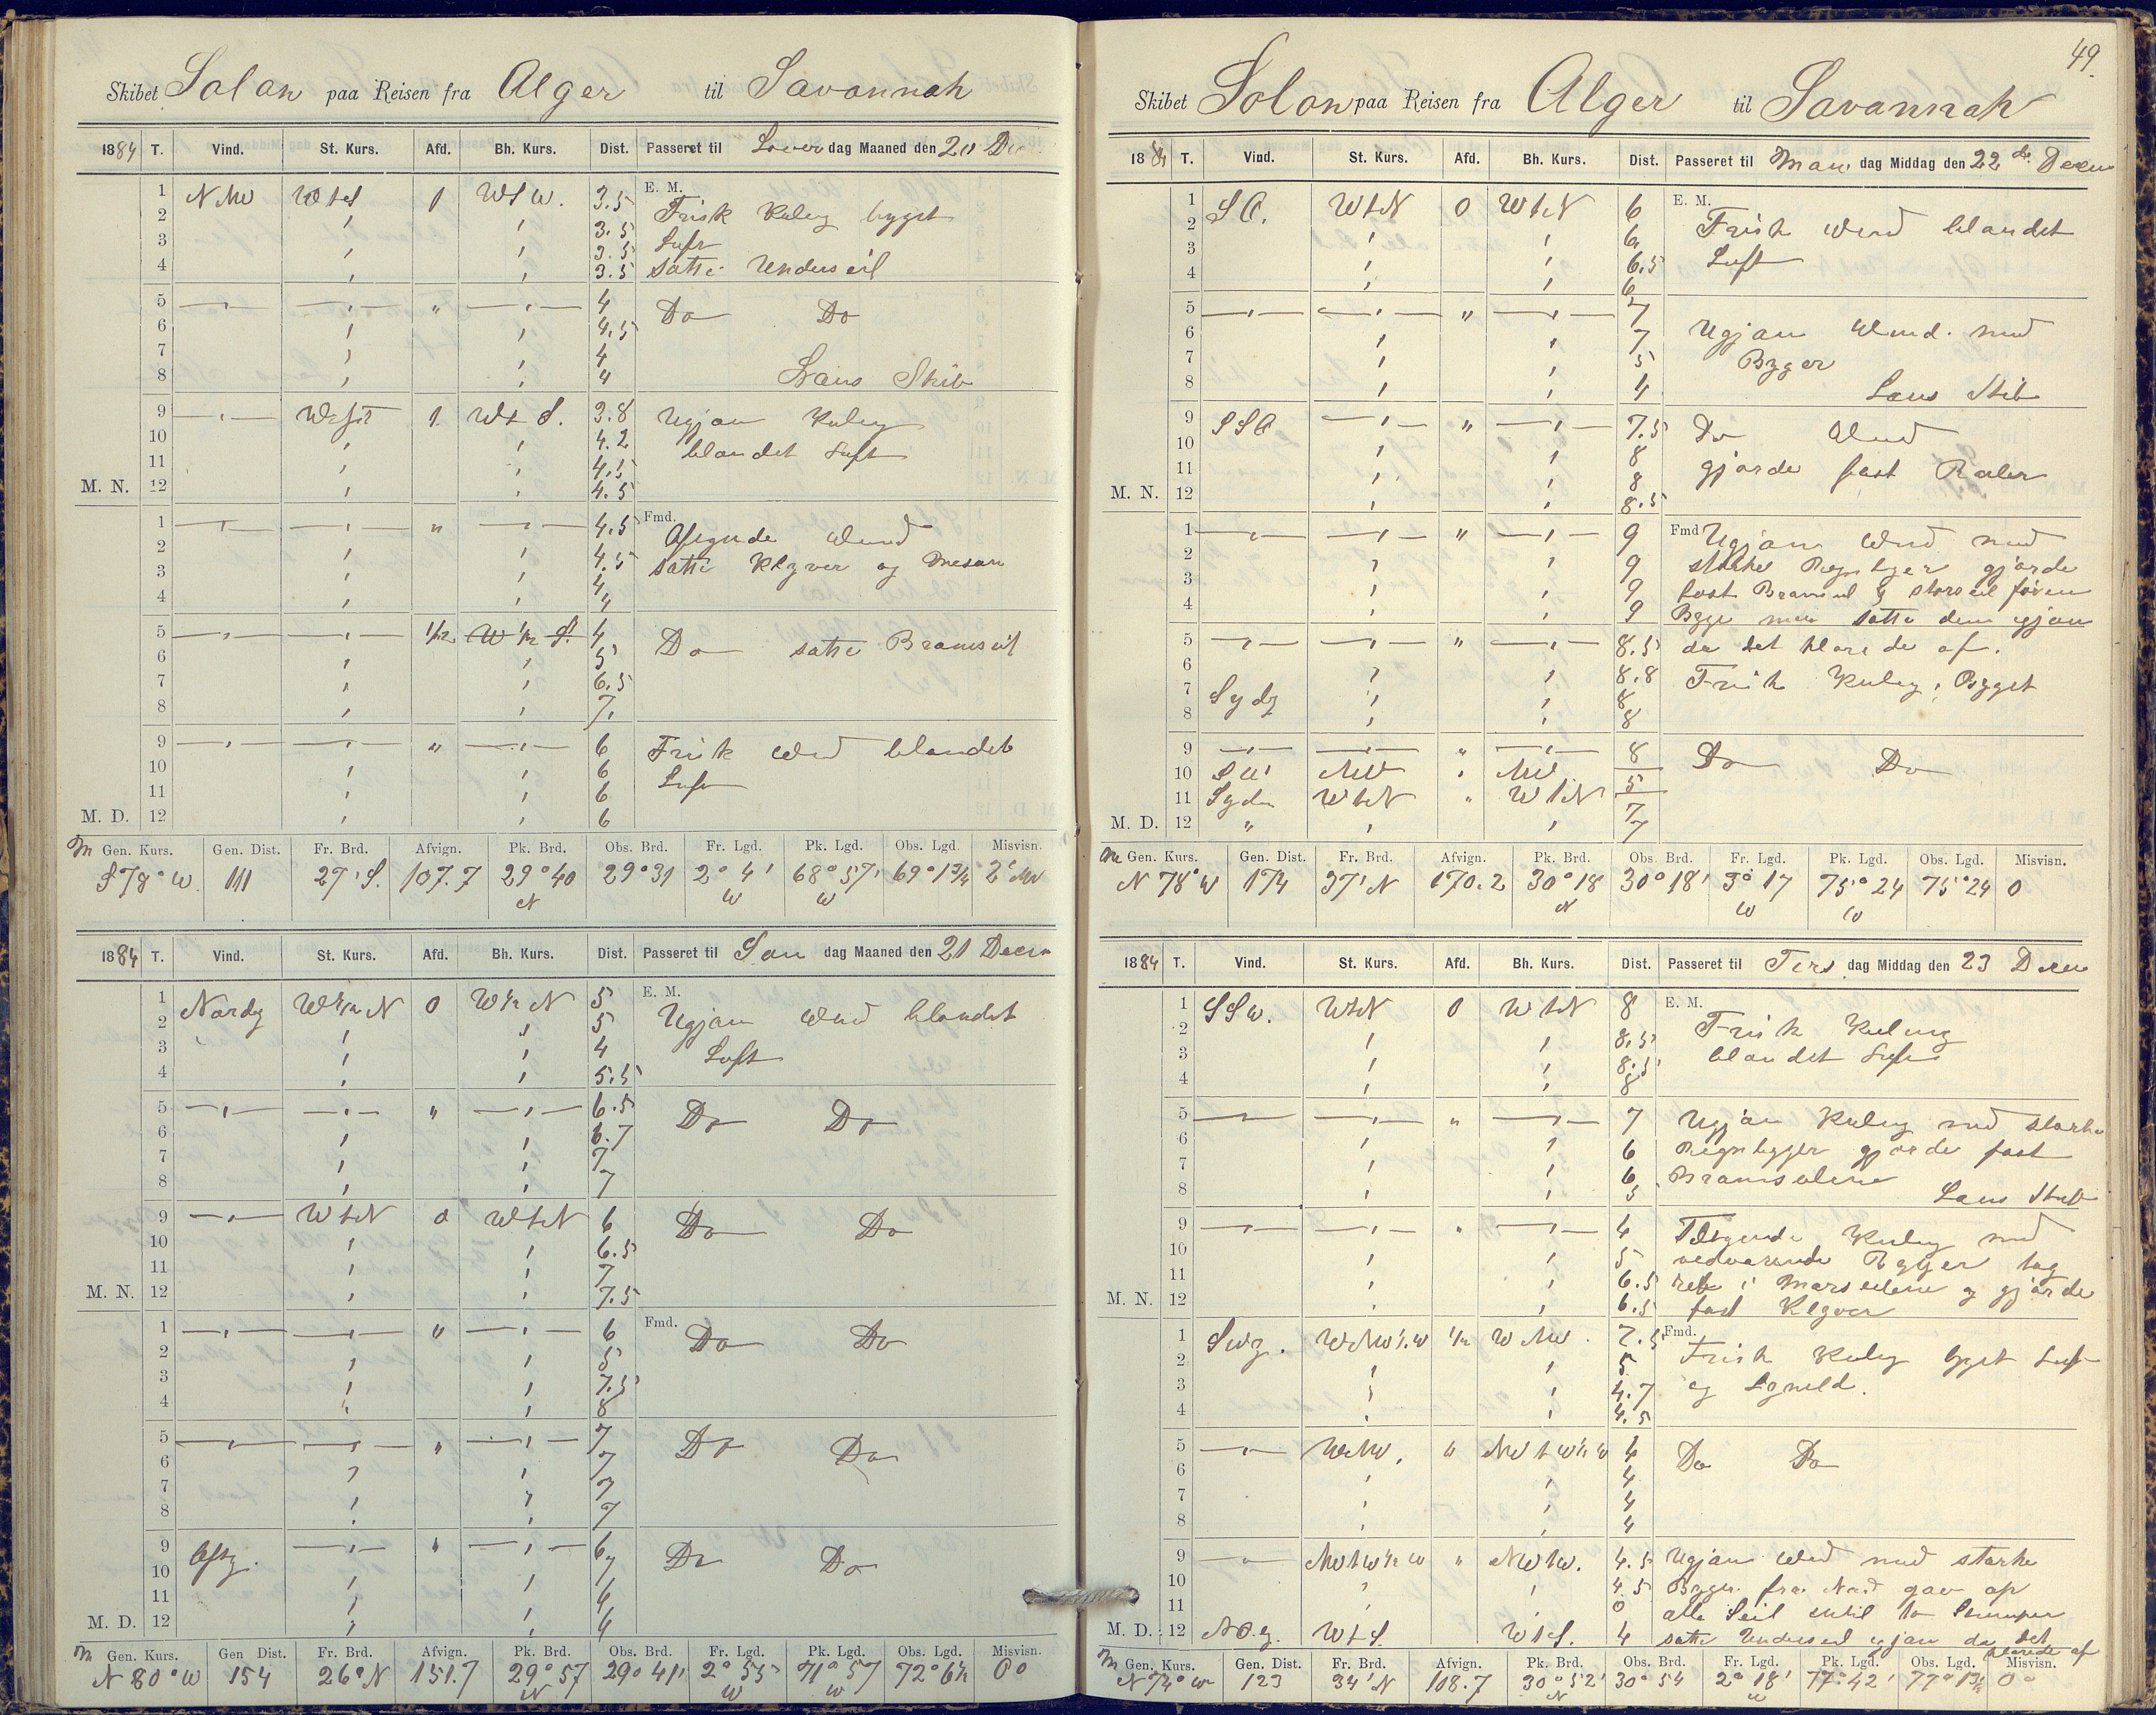 Skibet Solon paa Reisen fra Alger til Savannah
1884 T. Vind. St. Kurs. Afd. Bh. Kurs. Dist. Passeret til Løver dag Maaned den 20 Dec
1 NNW WtS 1 WtW. 3.5 E. M.
2 3.5 Frisk Kuling bygget
3 3.5 Luft
4 3.5 satte Underseil
5 " 4 Do Do
6 4.5
7 4
8 4 Læns Skib
9 West 1 WtS. 3.8 Ugjan Kuling
10 4.2 blandet Luft
11 4.5
M. N. 12 4.5
1 " 4.5 Fmd. Aftgnde Vind
2 4.5 satte Klyver og Mesan
3 4
4 4
5 1/2 W 1/2 S. 4 Do satte Bramseil
6 5
7 6.5
8 7
9 " 6 Frisk Vind blandet
10 6 Luft
11 6
M. D. 12 6
M Gen. Kurs. Gen. Dist. Fr. Brd. Afvign. Pk. Brd. Obs. Brd. Fr. Lgd. Pk. Lgd. Obs. Lgd. Misvisn.
S78°W. 111 27' S. 107.7 29°40 N 29°31 2°4' W 68°57' W 69°13/4
1884 T. Vind. St. Kurs. Afd. Bh. Kurs. Dist. Passeret til Søn dag Maaned den 21 Decem
1 Nordlg W1/2N 0 W1/2N 5 E. M.
2 5 Ugjan Vind blandet
3 4 Luft
4 5.5
5 " 6.5 Do Do
6 6.7
7 7
8 7
9 WtN 0 WtN 6 Do Do
10 6.5
11 7
M. N. 12 7.5
1 " 6 Fmd. Do Do
2 5
3 7.5
4 8
5 " 7 Do Do
6 7
7 7
8 7
9 Østg. " 6 Do Do
10 7
11 4
M. D. 12 4
M Gen. Kurs. Gen Dist. Fr. Brd. Afvign. Pk. Brd. Obs. Brd. Fr. Lgd. Pk. Lgd. Obs. Lgd. Misvisn.
N 80°W 154 26° N 151.7 29°57 N 29°41' 2°55' W 71°57 W 72°6 1/2 0°
49.
Skibet Solon paa Reisen fra Alger til Savannah
1884 T. Vind. St. Kurs. Afd. Bh. Kurs. Dist. Passeret til Man dag Middag den 22de Decem
1 SO. WtN 0 WtN 6 E. M.
2 6 Frisk Vind blandet
3 6.5 Luft
4 6
5 " 7 Ugjan Vind med
6 7 Byger
7 5
8 4 Læns Skib
9 SSO " 7.5 Do Vind
10 8 gjorde fast Røiler
11 8
M. N. 12 8.5
1 " 9 Fmd Ugjan Vind med
2 9 stærke Regnbyger gjorde
3 9 fast Bramseil & Storseil for en
4 9 Byge men satte dem igjan
5 " 8.5 da det klarede af.
6 8.8 Frisk Kuling, Bygget
7 Sydg 8
8 8
9 " 8 Do Do
10 SW NW NW 5
11 Syden WtN " WtN 7
M. D. 12 " 7
M Gen. Kurs. Gen. Dist. Fr. Brd. Afvign. Pk. Brd. Obs. Brd. Fr. Lgd. Pk. Lgd. Obs. Lgd. Misvisn.
N 78°W 174 37' N 170.2 30°18 N 30°18' 3°17 W 75°24 W 75°24 0
1884 T. Vind. St. Kurs. Afd. Bh. Kurs. Dist. Passeret til Tirs dag Middag den 23 Decem
1 SSW. WtN 0 WtN 8 E. M.
2 8.5 Frisk Kuling
3 8.5 blandet Luft
4 8
5 " 7 Ugjan Kuling med stærke
6 6 Regnbyger gjorde fast
7 6 Bramseilene
8 5 Læns Skib
9 " 4 Tiltgende Kuling med
10 5 vedvarende Bygger tog
11 6.5 reb i Marsseilene og gjorde
M. N. 12 6.5 fast Klyver
1 SWg. WNW1/2W 1/2 WNW. 7.5 Fmd.
2 5 Frisk Kuling bygget Luft
3 4.7 og Lynild.
4 4.5
5 WNW. " NWtW1/2W 4 Do Do
6 4
7 4
8 4
9 NWtW1/2W " NWtW. 4.5 Ugjan Vind med stærke
10 4.5 Byger fra Nord gav op
11 0 alle Seil
M. D. 12 NO.g. WtS. WtS. 4 satte Underseil igjan da det
klarede af
M Gen. Kurs. Gen. Dist. Fr. Brd. Afvign. Pk. Brd. Obs. Brd. Fr. Lgd. Pk. Lgd. Obs. Lgd. Misvisn.
N 74°W 123 34' N 118.7 30°52' N 30°54 2°18' W 77°42' 77°13 1/2 0°